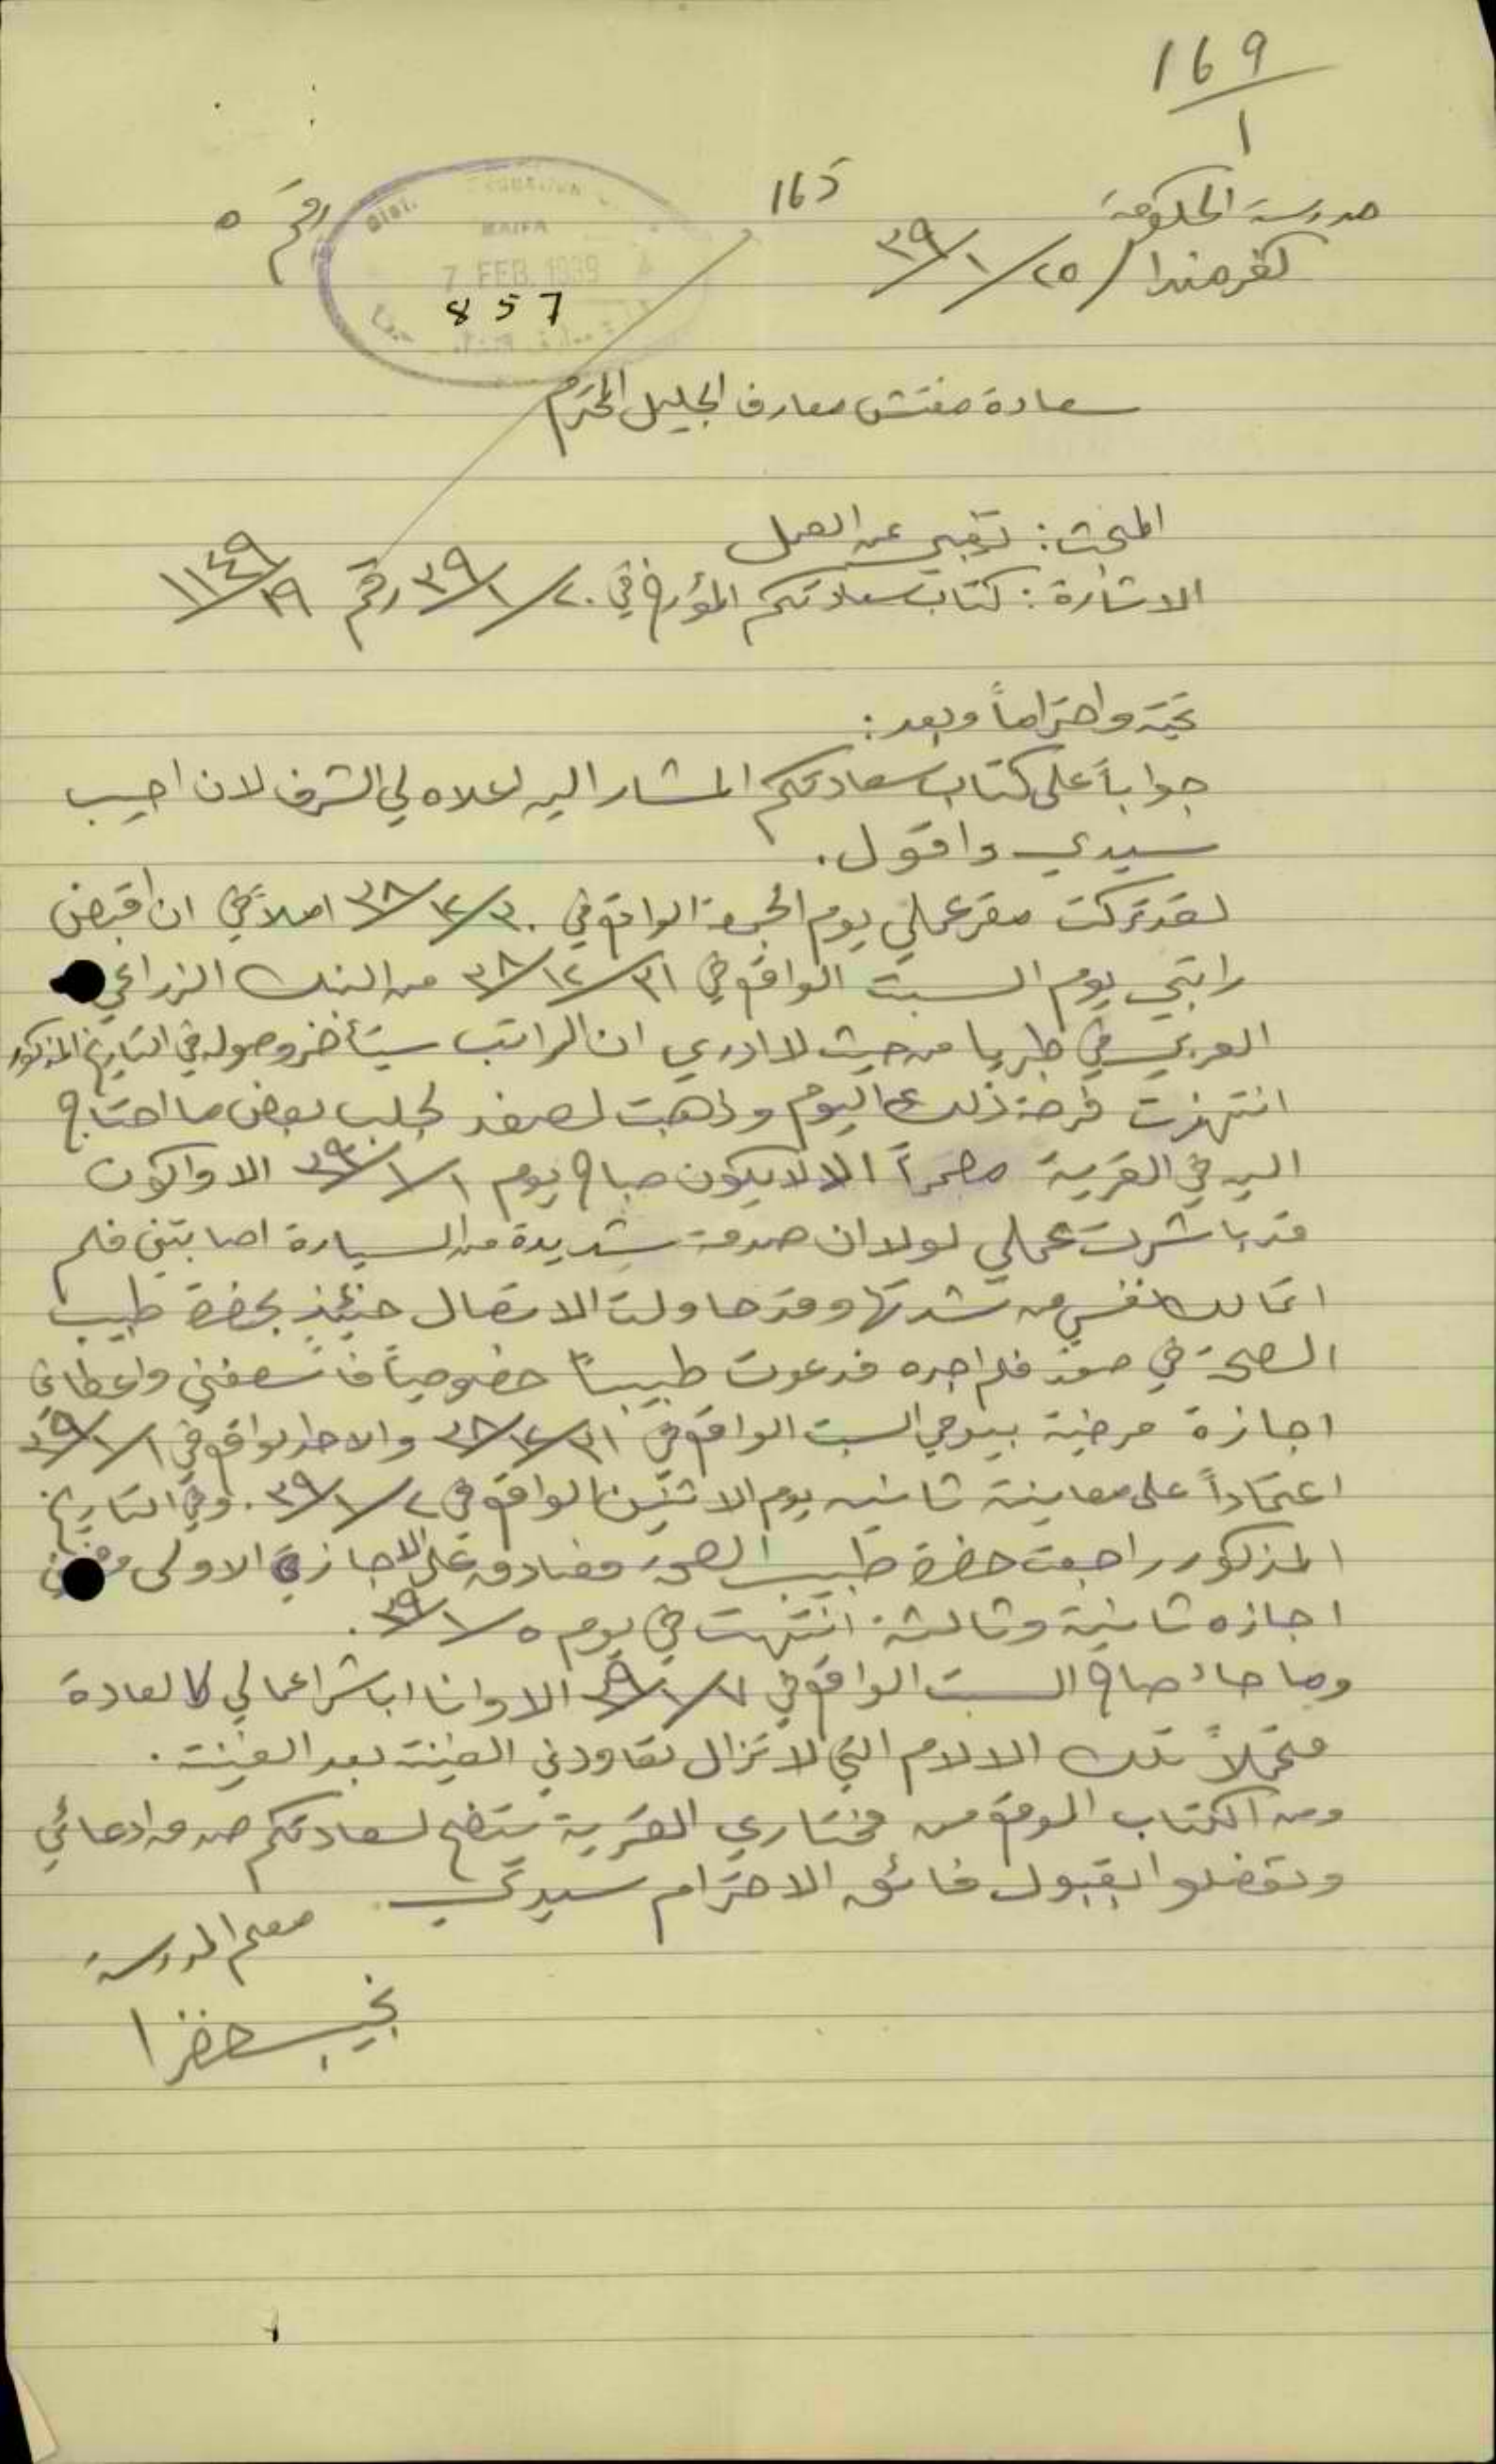 169
1
مدرسة الحكومة
165
رقم ٥
كفرمندا / ٢٥/١/٣٩
HAIFA
7 FEB 1939
857
سعادة مفتش معارف الجليل المحترم
المبحث: تغيبي عن العمل
الاشارة: كتاب سعادتكم المؤرخ في ٢٠/١/٣٩ رقم
تحية واحتراماً وبعد:
جواباً على كتاب سعادتكم المشار اليه اعلاه لي الشرف لان اجيب
سيدي واقول.
لقد تركت مقر عملي يوم الجمعة الواقع في ٣٠/١٢/٣٨ املاً في ان اقبض
راتبي يوم السبت الواقع في ٣١/١٢/٣٨ من البنك الزراعي
العربي في طبريا من حيث لا ادري ان الراتب سيتأخر وصوله في التاريخ المذكور
انتهزت فرصة ذلك اليوم وذهبت لصفد لجلب بعض ما احتاج
اليه في القرية مصمماً الا لا يكون صباح يوم ١/١/٣٩ الا واكون
قد باشرت عملي لولا ان صدمة شديدة من السيارة اصابتني فلم
اتمالك نفسي من شدتها وقد حاولت الاتصال حينئذٍ بحضرة طبيب
الصحة في صفد فلم اجده فدعوت طبيباً خصوصياً فاسعفني واعطاني
اجازة مرضية بيومي السبت الواقع في ٣١/١٢/٣٨ والاحد الواقع في ١/١/٣٩
اعتماداً على معاينة ثانية يوم الاثنين الواقع في ٢/١/٣٩. وفي التاريخ
المذكور راجعت حضرة طبيب الصحة فصادق على الاجازة الاولى
اجازه ثانية وثالثة انتهت في يوم ٥/١/٣٩.
وما جاء صباح السبت الواقع في ٧/١/٣٩ الا وانا اباشر اعمالي كالعادة
متحملاً تلك الالام التي لا تزال تعاودني الفينة بعد الفينة.
ومن الكتاب الموقع من مختاري القرية يتضح لسعادتكم صدق ادعائي
وتفضلوا بقبول فائق الاحترام سيدي
معلم المدرسة
نجيب خضرا